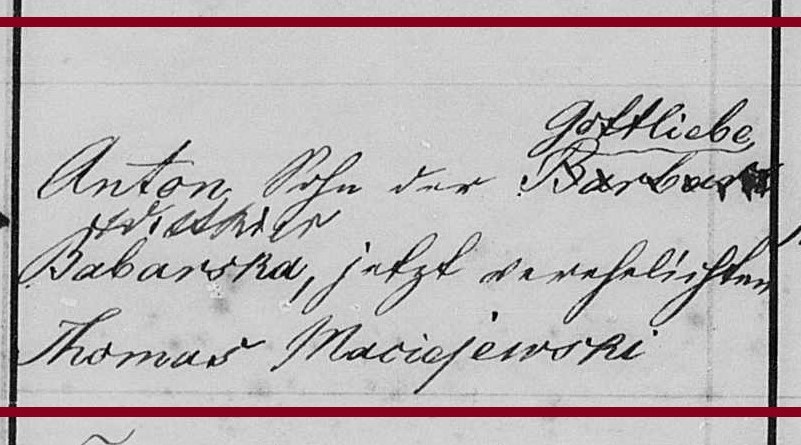 Gottliebe
Anton, Sohn der Barbara
Babarska, jetzt verehelichten
Thomas Maciejewski